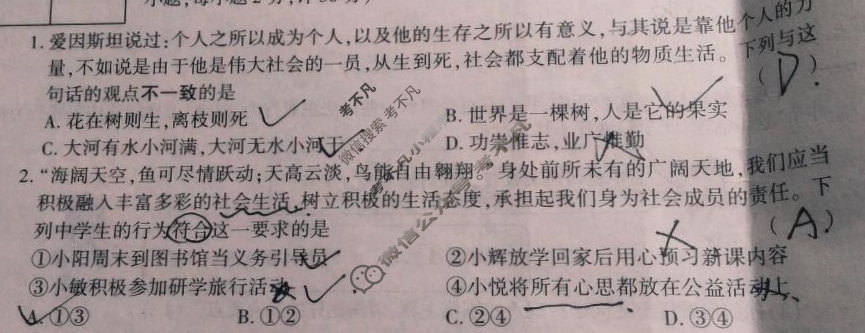 小题,每小题2分,计
1. 爱因斯坦说过:个人之所以成为个人,以及他的生存之所以有意义,与其说是靠他个人的力
量,不如说是由于他是伟大社会的一员,从生到死,社会都支配着他的物质生活。下列与这
句话的观点不一致的是 ( D ).
A. 花在树则生,离枝则死
B. 世界是一棵树,人是它的果实
C. 大河有水小河满,大河无水小河干
D. 功崇惟志,业广惟勤
2. “海阔天空,鱼可尽情跃动;天高云淡,鸟能自由翱翔。”身处前所未有的广阔天地,我们应当
积极融入丰富多彩的社会生活,树立积极的生活态度,承担起我们身为社会成员的责任。下
列中学生的行为符合这一要求的是 ( A )
①小阳周末到图书馆当义务引导员
②小辉放学回家后用心预习新课内容
③小敏积极参加研学旅行活动
④小悦将所有心思都放在公益活动上
A. ①③ B. ①② C. ②④ D. ③④
考不凡
微信搜索 考不凡
微信公众号 考不凡